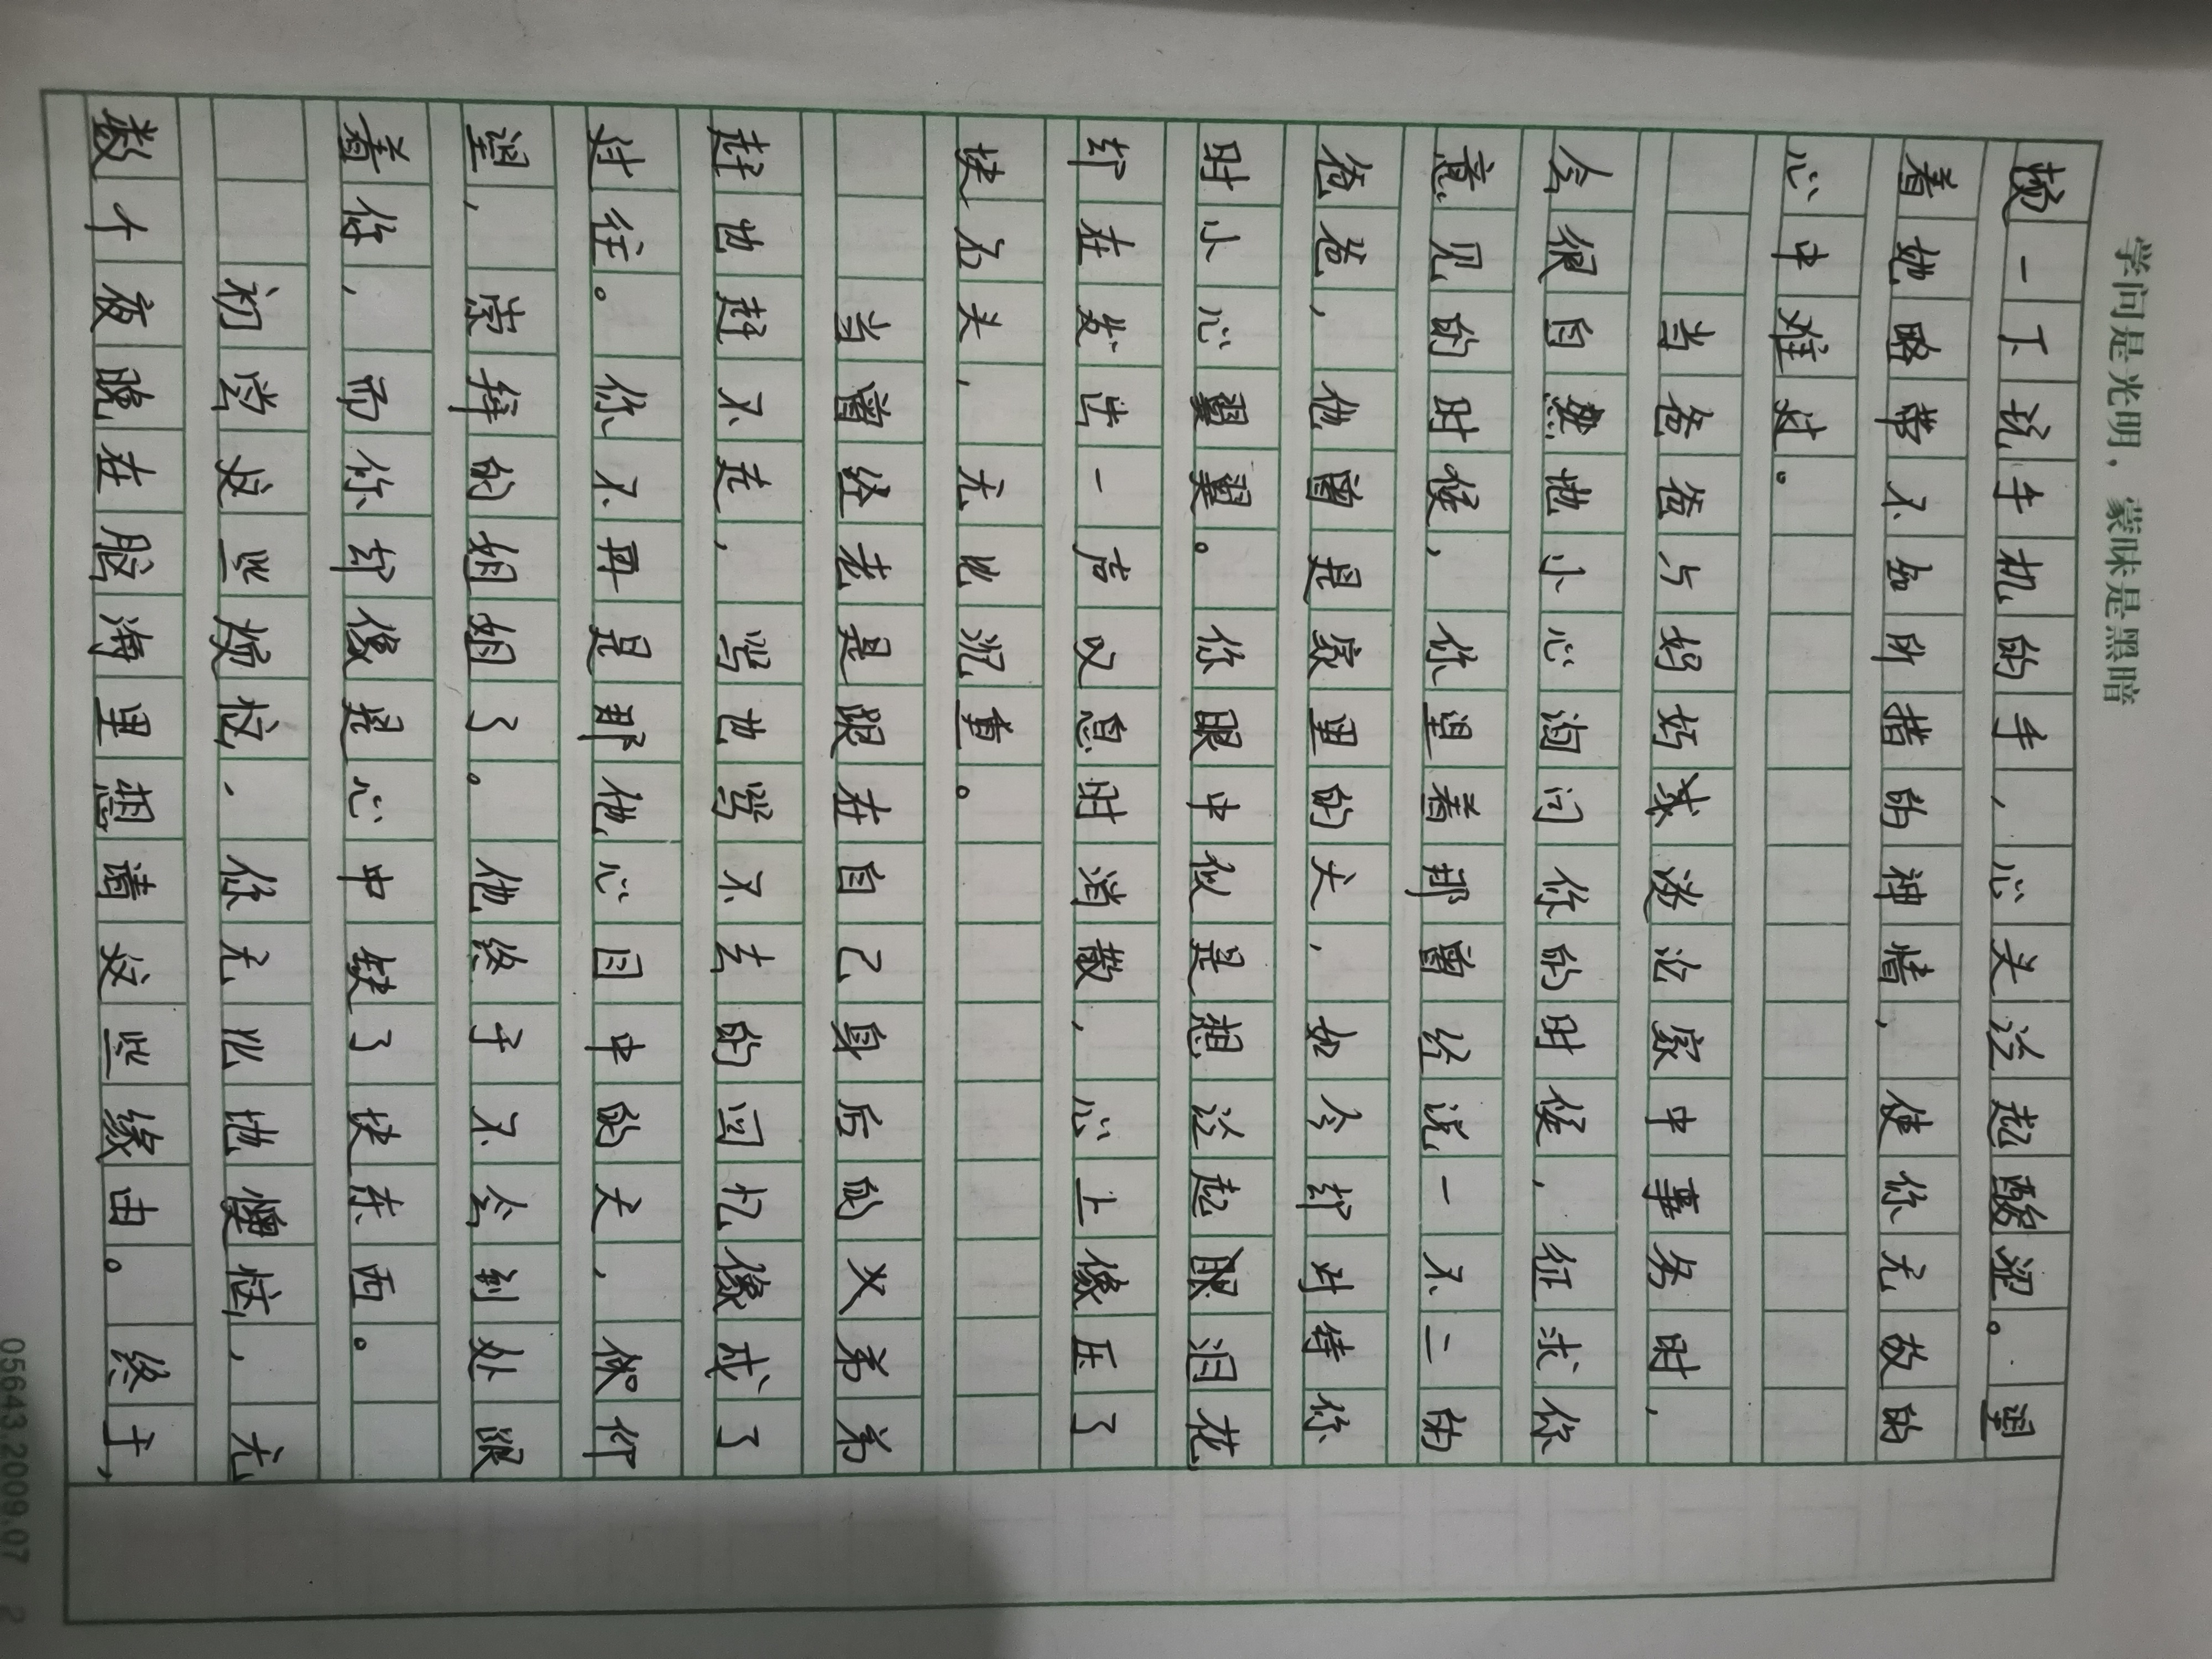 学问是光明，蒙昧是黑暗
扬一下玩手机的手，心头泛起酸涩。望
着她略带不知所措的神情，使你无故的
心中难过。
当爸爸与妈妈或谈论家中事务时，
会很自然地小心询问你的时候，征求你
意见的时候，你望着那曾经说一不二的
爸爸，他曾是家里的天，如今却对待你
时小心翼翼。你眼中似是想泛起眼泪花，
却在发出一声叹息时消散，心上像压了
块石头，无比沉重。
当曾经老是跟在自己身后的义弟弟
赶也赶不走，骂也骂不去的回忆像成了
过往。你不再是那他心目中的天，候仰
望，崇拜的姐姐了。他终于不会到处跟
着你，而你却像是心中缺了块东西。
初尝这些烦恼，你无比地懊恼，无
数个夜晚在脑海里想清这些缘由。终于，
05643.2009.07 2